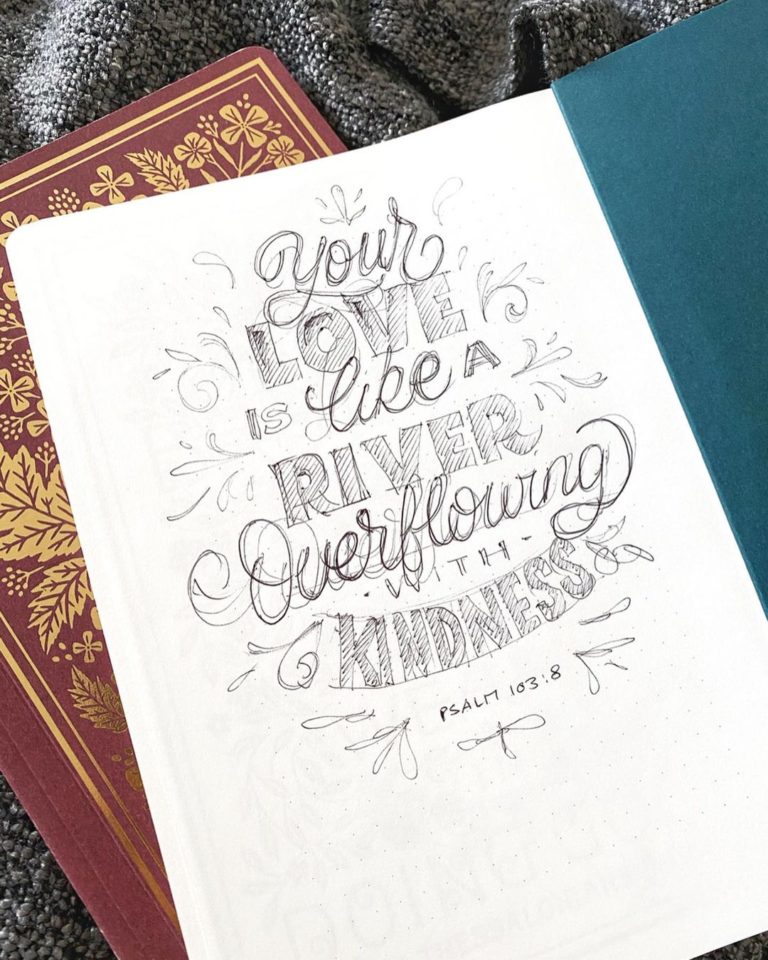 Your
LOVE
IS like A
RIVER
Overflowing
· WITH ·
KINDNESS
PSALM 103:8